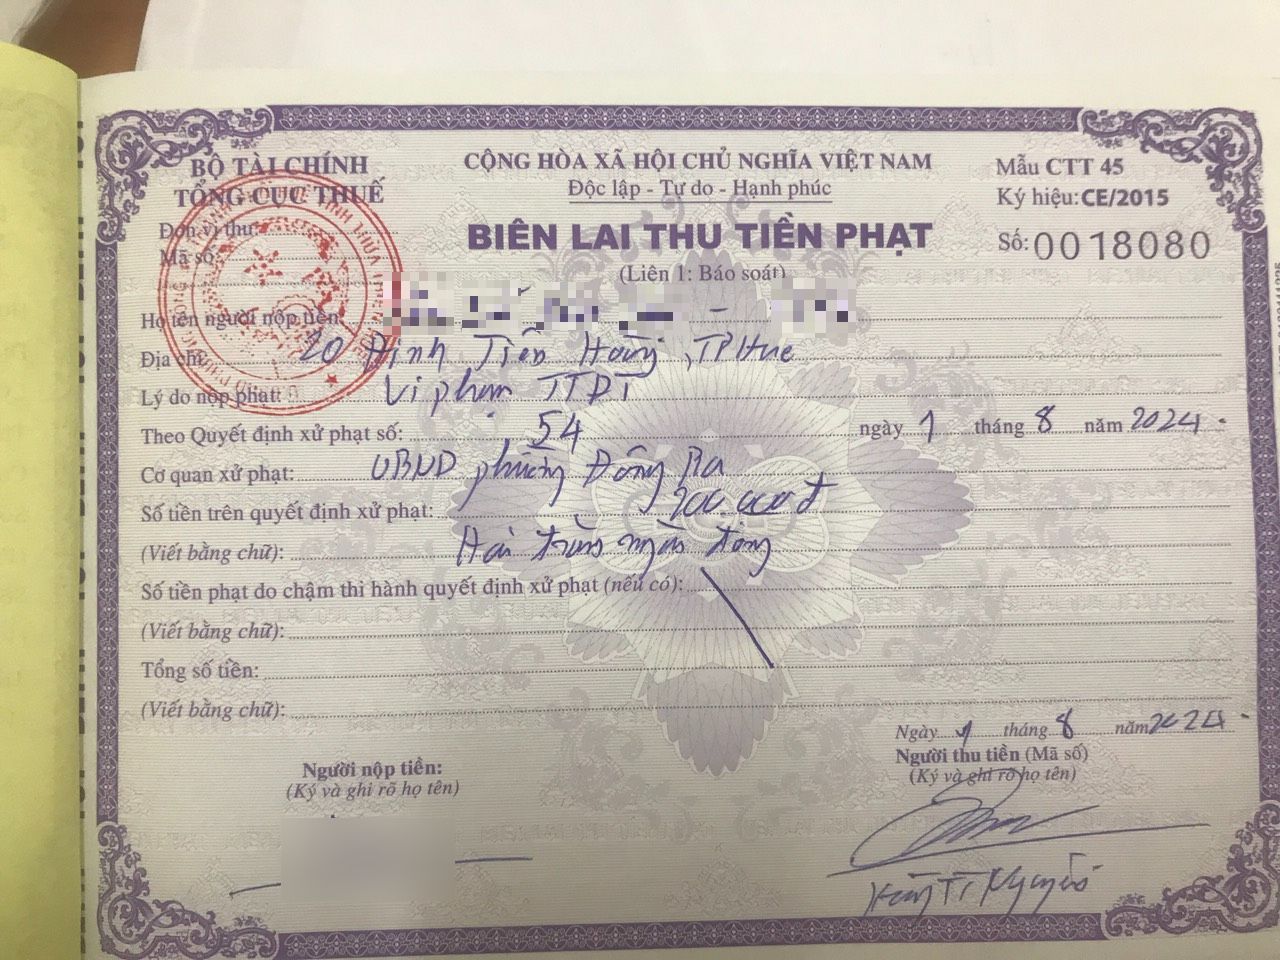 BỘ TÀI CHÍNH
TỔNG CỤC THUẾ
CỘNG HÒA XÃ HỘI CHỦ NGHĨA VIỆT NAM
Độc lập - Tự do - Hạnh phúc
Mẫu CTT 45
Ký hiệu: CE/2015
Số: 0018080
BIÊN LAI THU TIỀN PHẠT
(Liên 1: Báo soát)
Đơn vị thu:
Mã số:
Họ tên người nộp tiền
Địa chỉ: 20 Đinh Tiên Hoàng, TP Huế
Lý do nộp phạt: Vi phạm TTĐT
Theo Quyết định xử phạt số: 54 ngày 1 tháng 8 năm 2024
Cơ quan xử phạt: UBND phường Đông Ba
Số tiền trên quyết định xử phạt: 200.000đ
(Viết bằng chữ): Hai trăm ngàn đồng
Số tiền phạt do chậm thi hành quyết định xử phạt (nếu có):
(Viết bằng chữ):
Tổng số tiền:
(Viết bằng chữ):
Ngày 1 tháng 8 năm 2024
Người nộp tiền:
(Ký và ghi rõ họ tên)
Người thu tiền (Mã số)
(Ký và ghi rõ họ tên)